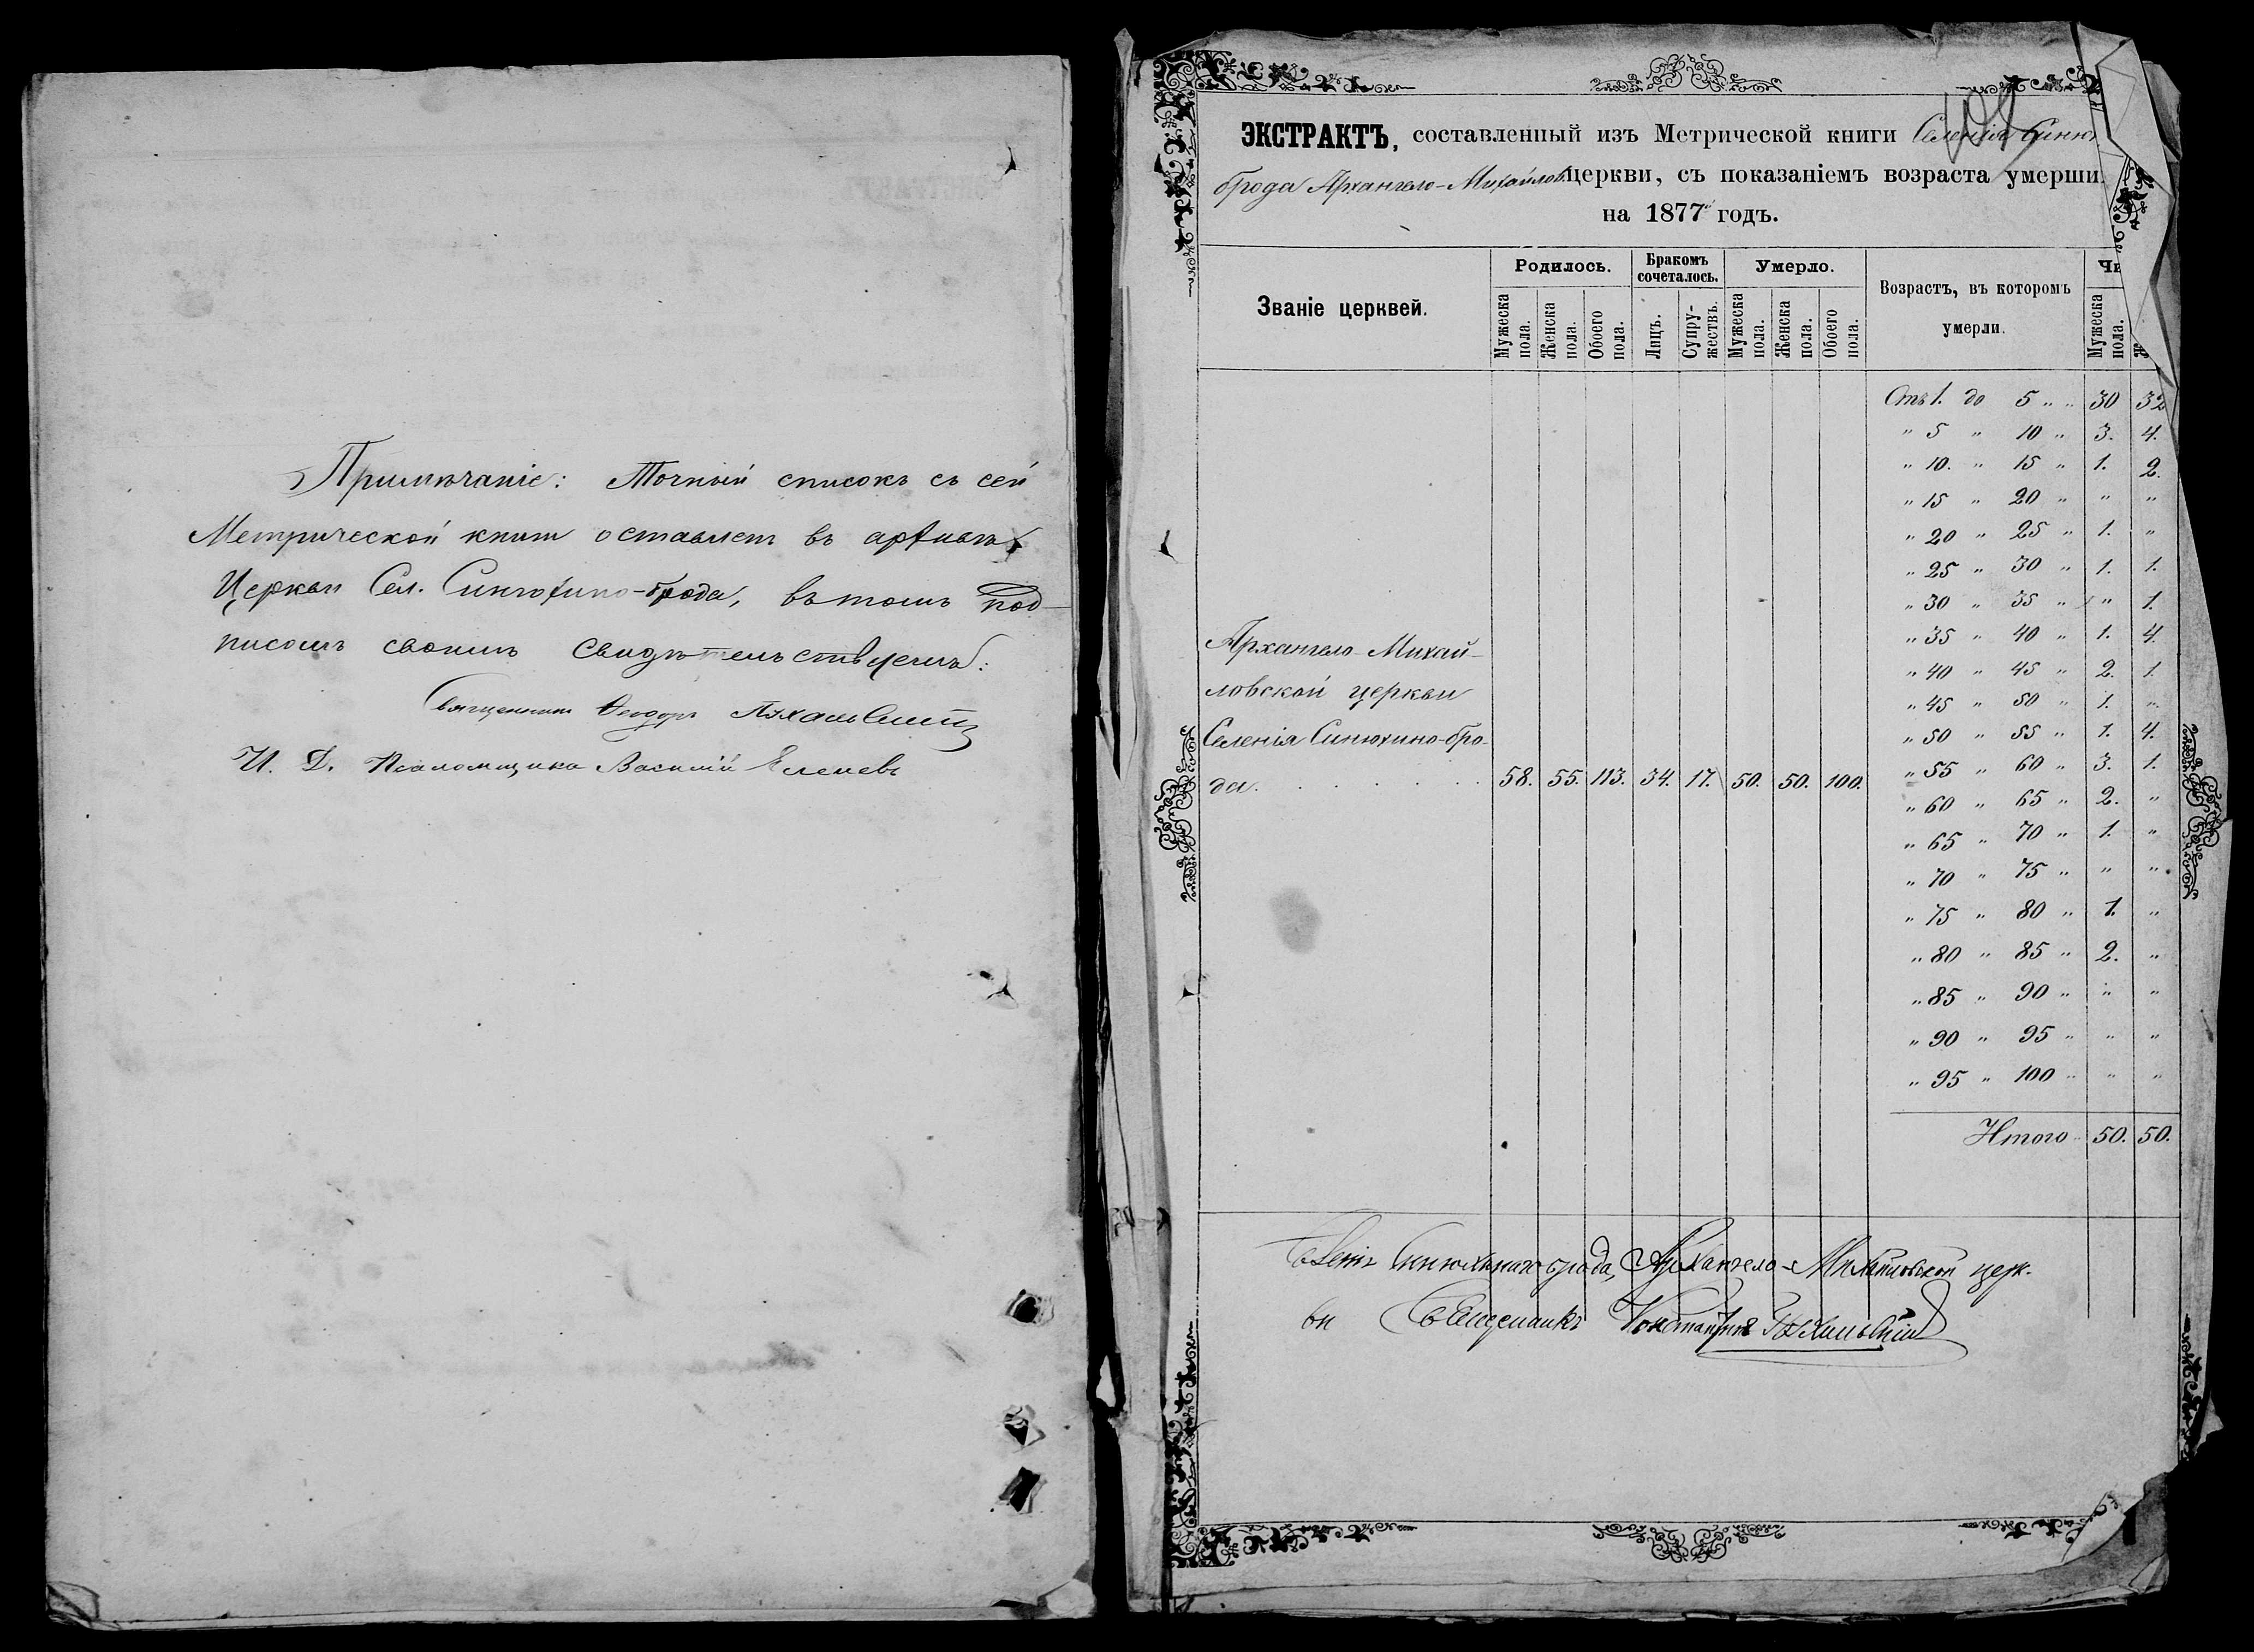 Примѣчаніе: Точный списокъ съ сей
Метрической книги оставленъ въ архивѣ
Церкви Сел. Синюхино-брода, въ томъ под-
писомъ своимъ свидѣтельствуемъ:
Священникъ Ѳеодоръ
И. Д. Псаломщика Василій Еленевъ
ЭКСТРАКТЪ, составленный изъ Метрической книги Селенія Синю
брода Архангело-Михайлов. церкви, съ показаніемъ возраста умерши
на 1877 годъ.
Званіе церквей. Родилось. Бракомъ сочеталось. Умерло. Возрастъ, въ которомъ умерли. Чи
Мужеска пола. Женска пола. Обоего пола. Лицъ. Супру-жествъ. Мужеска пола. Женска пола. Обоего пола. Мужеска пола. Ж
Отъ 1. до 5 „ „ 30 32
„ 5 „ 10 „ 3. 4.
„ 10. „ 15 „ 1. 2.
„ 15 „ 20 „ „ „
„ 20 „ 25 „ 1. „
„ 25 „ 30 „ 1. 1.
„ 30 „ 35 „ „ 1.
„ 35 „ 40 „ 1. 4.
„ 40 „ 45 „ 2. 1.
„ 45 „ 50 „ 1. „
„ 50 „ 55 „ 1. 4.
„ 55 „ 60 „ 3. 1.
„ 60 „ 65 „ 2. „
„ 65 „ 70 „ 1. „
„ 70 „ 75 „ „ „
„ 75 „ 80 „ 1. „
„ 80 „ 85 „ 2. „
„ 85 „ 90 „ „ „
„ 90 „ 95 „ „ „
„ 95 „ 100 „ „ „
Архангело-Михай-
ловской церкви
Селенія Синюхино-бро-
да. 58. 55. 113. 34. 17. 50. 50. 100.
Итого 50. 50.
Синюхинаго брода, Архангело-Михайловской церк-
ви Священникъ Константинъ